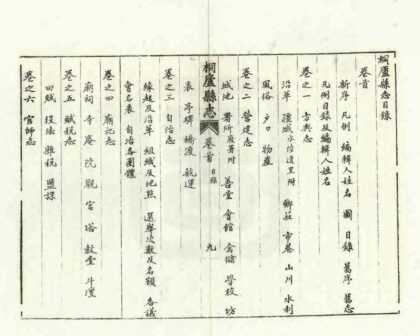 桐廬縣志目錄
卷首
新序 凡例 編輯人姓名 圖 目錄 舊序 舊志
凡例目錄及編輯人姓名
卷之一 方輿志
沿革 疆域 水陸道里附 鄉莊 市巷 山川 水利
風俗 戶口 物產
卷之二 營建志
城池 署所廢署附 善堂 會館 倉儲 學校 坊
桐廬縣志 卷首 目錄 九
表 亭 碑 橋渡 航運
卷之三 自治志
緣起及沿革 組織及地點 選舉次數及名額 各議
會名表 自治各團體
卷之四 廟祀志
廟祠 寺 庵 院 觀 宮 塔 教堂 斗壇
卷之五 賦稅志
田賦 役法 雜稅 鹽課
卷之六 官師志